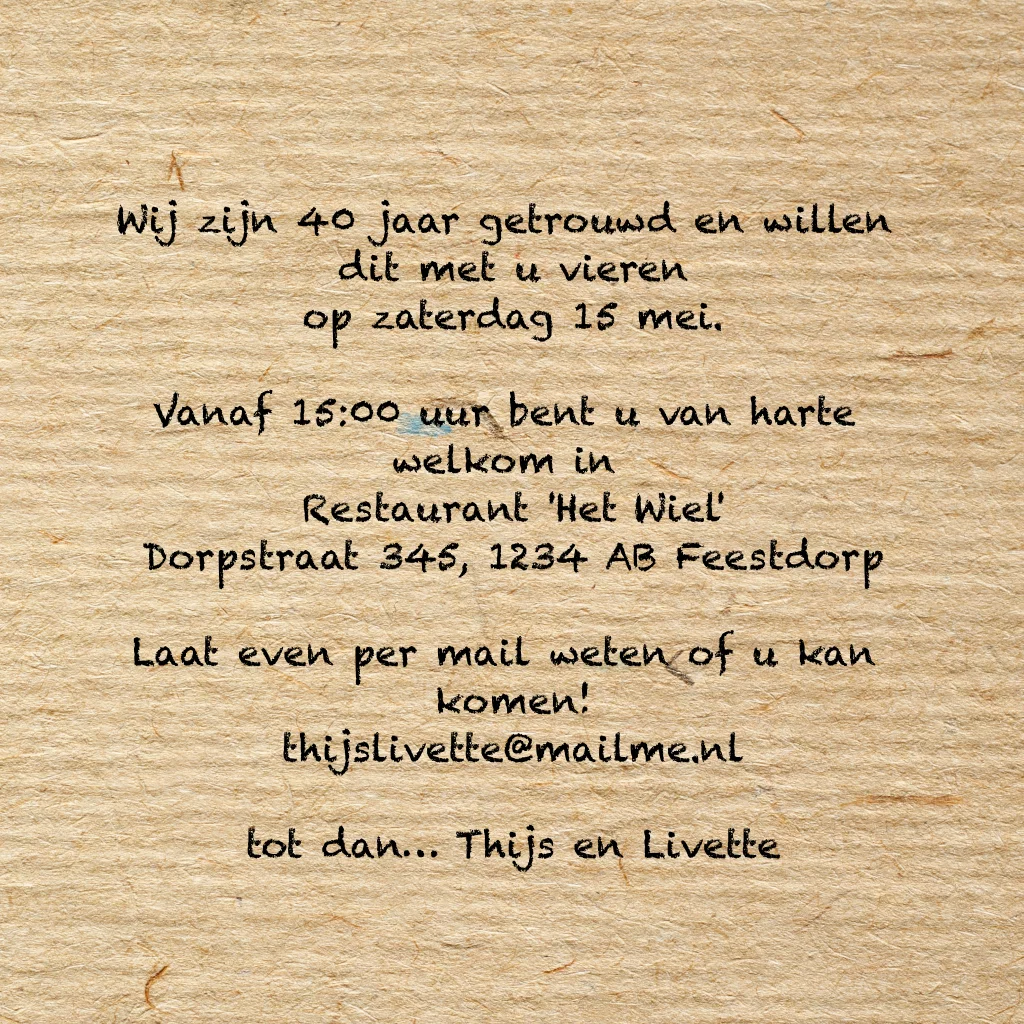 Wij zijn 40 jaar getrouwd en willen
dit met u vieren
op zaterdag 15 mei.
Vanaf 15:00 uur bent u van harte
welkom in
Restaurant 'Het Wiel'
Dorpstraat 345, 1234 AB Feestdorp
Laat even per mail weten of u kan
komen!
thijslivette@mailme.nl
tot dan... Thijs en Livette